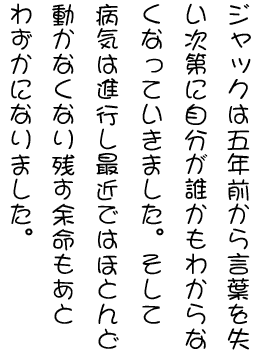 ジャックは五年前から言葉を失
い次第に自分が誰かもわからな
くなっていきました。そして
病気は進行し最近ではほとんど
動かなくなり残す余命もあと
わずかになりました。